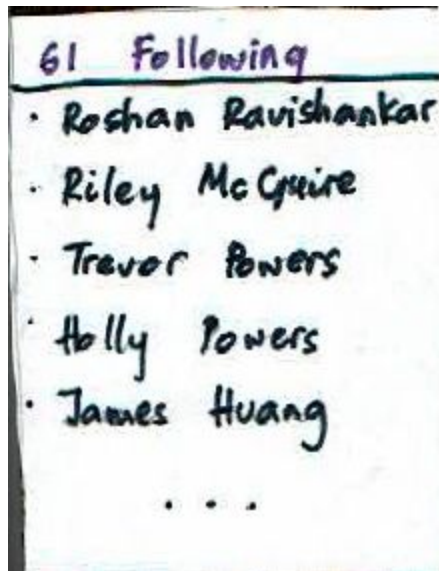 61 Following
· Roshan Ravishankar
· Riley McGuire
· Trevor Powers
· Holly Powers
· James Huang
...